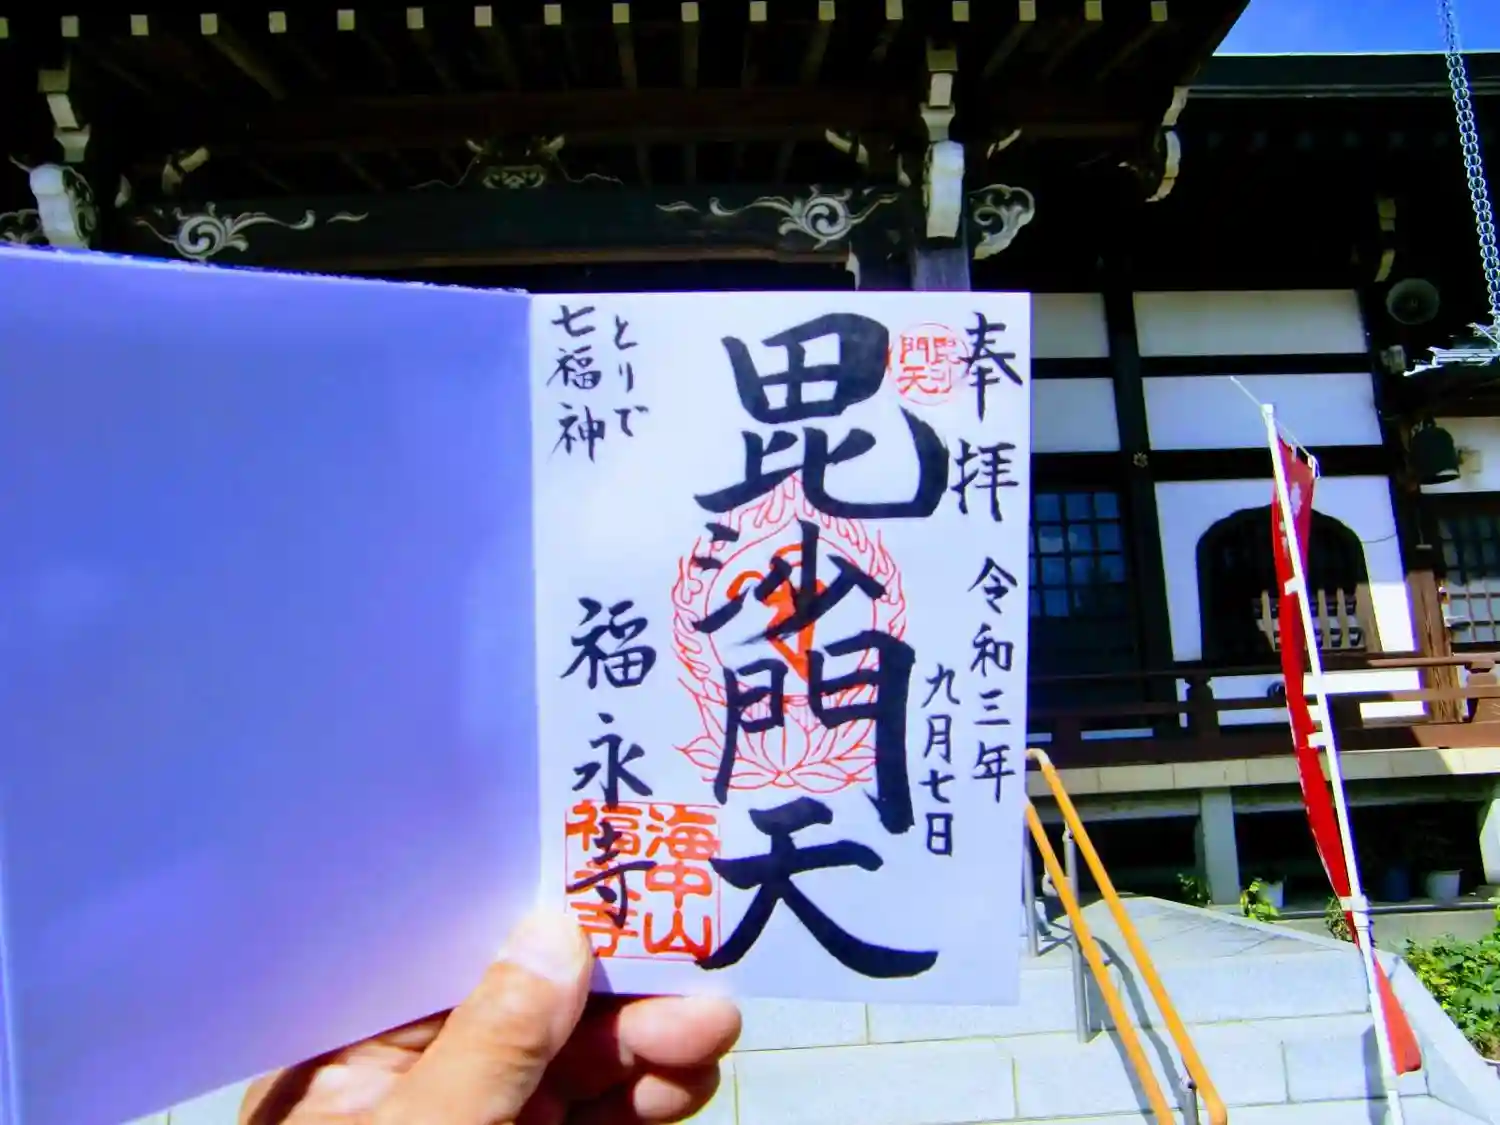 奉拝
令和三年
九月七日
毘沙門天
毘沙門天
とりで
七福神
福永寺
海中山
福永寺